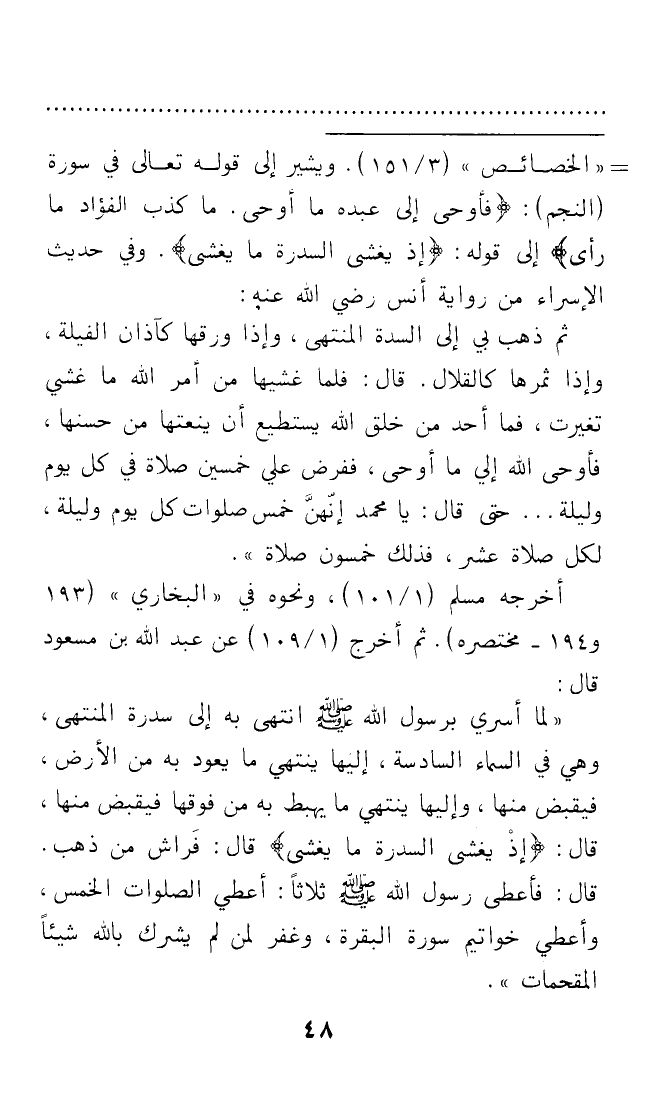 = « الخصائص » (٣/١٥١). ويشير إلى قوله تعالى في سورة
(النجم): ﴿فأوحى إلى عبده ما أوحى. ما كذب الفؤاد ما
رأى﴾ إلى قوله: ﴿إذ يغشى السدرة ما يغشى﴾. وفي حديث
الإسراء من رواية أنس رضي الله عنه:
ثم ذهب بي إلى السدة المنتهى، وإذا ورقها كآذان الفيلة،
وإذا ثمرها كالقلال. قال: فلما غشيها من أمر الله ما غشي
تغيرت، فما أحد من خلق الله يستطيع أن ينعتها من حسنها،
فأوحى الله إلي ما أوحى، ففرض علي خمسين صلاة في كل يوم
وليلة... حتى قال: يا محمد إنّهنَّ خمس صلوات كل يوم وليلة،
لكل صلاة عشر، فذلك خمسون صلاة ».
أخرجه مسلم (١/١٠١)، ونحوه في « البخاري » (١٩٣
و١٩٤ ـ مختصره). ثم أخرج (١/١٠٩) عن عبد الله بن مسعود
قال:
« لما أسري برسول الله ﷺ انتهى به إلى سدرة المنتهى،
وهي في السماء السادسة، إليها ينتهي ما يعود به من الأرض،
فيقبض منها، وإليها ينتهي ما يهبط به من فوقها فيقبض منها،
قال: ﴿إذْ يغشى السدرة ما يغشى﴾ قال: فَراش من ذهب.
قال: فأعطى رسول الله ﷺ ثلاثاً: أعطي الصلوات الخمس،
وأعطي خواتيم سورة البقرة، وغفر لمن لم يشرك بالله شيئاً
المقحمات ».
٤٨